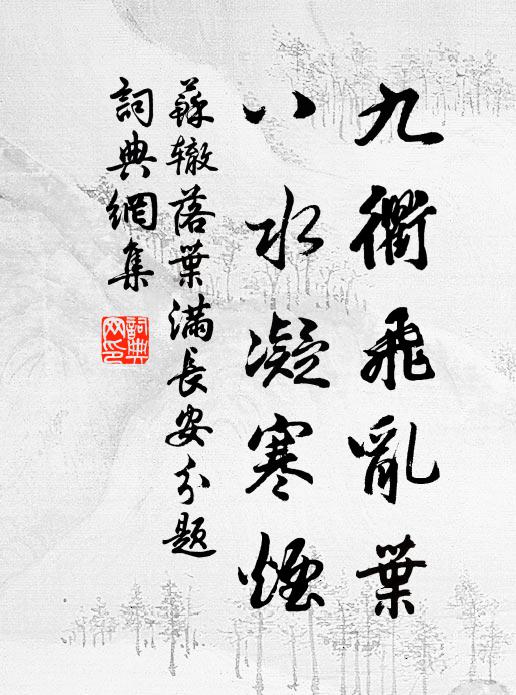 九衢飛亂葉
八水凝寒煙
蘇轍落葉滿長安分題
詞典網集
詞典
网印